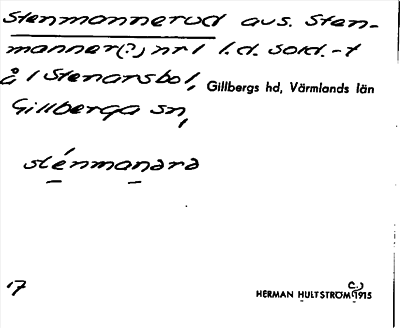 Stenmannerud avs. Sten-
manner(?) nr 1 l.d. sold.-t
å 1 Stenarsbol, Gillbergs hd, Värmlands län
Gillberga sn,
sténmanərə
17
HERMAN HULTSTRÖM (c.) 1915